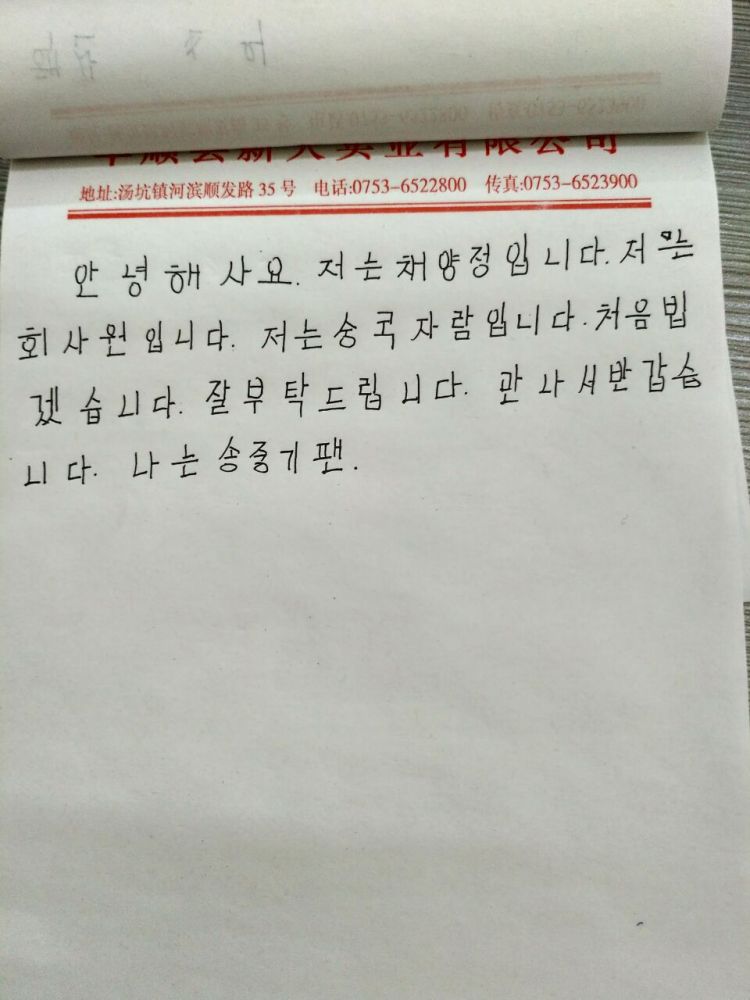 丰顺县新大实业有限公司
地址:汤坑镇河滨顺发路 35 号 电话:0753-6522800 传真:0753-6523900
안녕해사요. 저는채양정입니다. 저 만는
회사원입니다. 저는숭국자람입니다. 처음빕
겠습니다. 잘부탁드립니다. 만나서반갑슴
니다. 나는송중기팬.